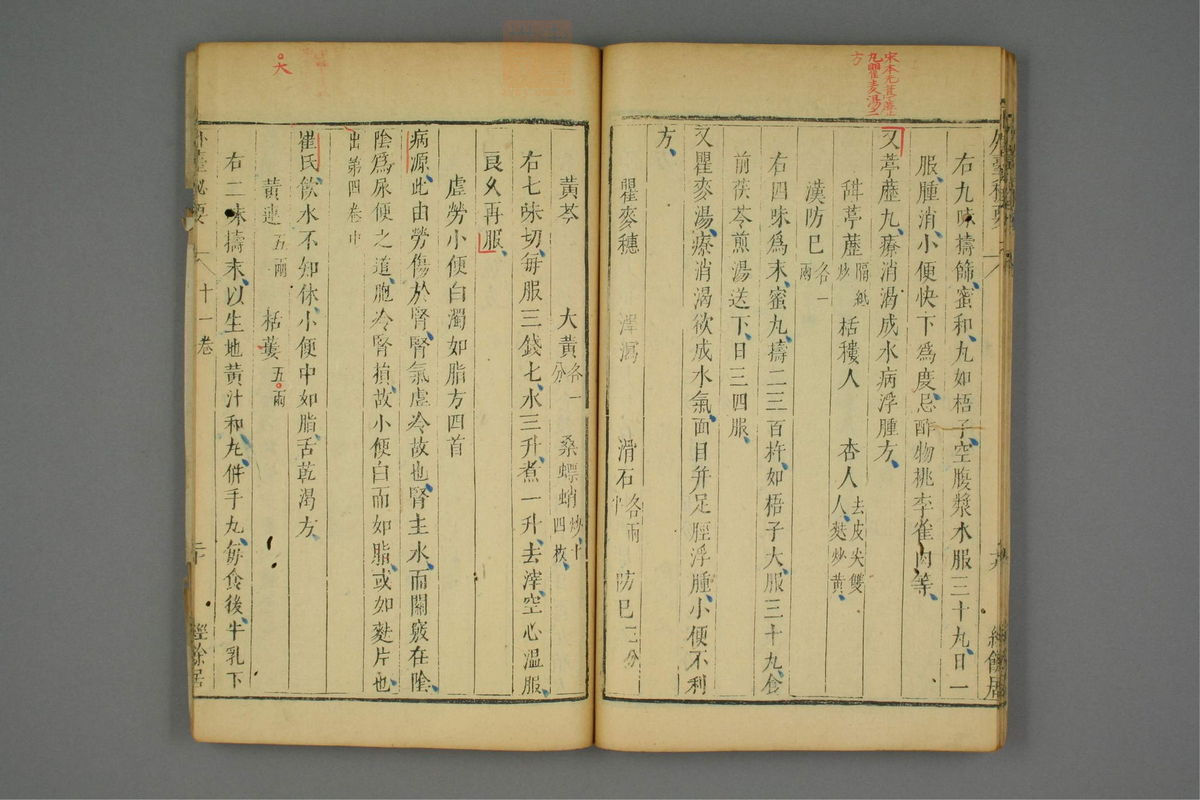 右九味擣篩蜜和丸如梧子空腹漿水服三十丸日一
服腫消小便快下為度忌酢物桃李雀肉等
又葶藶丸療消渴成水病浮腫方
甜葶藶隔紙炒 栝樓人 杏人去皮尖雙人麩炒黃
漢防巳各一兩
右四味爲末蜜丸擣二三百杵如梧子大服三十丸食
前茯苓煎湯送下日三四服
又瞿麥湯療消渴欲成水氣面目并足脛浮腫小便不利
方
瞿麥穗 澤瀉 滑石各半兩 防巳三分
黃芩 大黃各一分 桑螵蛸炒十四枚
右七味切每服三錢七水三升煮一升去滓空心溫服
良久再服
虛勞小便白濁如脂方四首
病源此由勞傷於腎腎氣虛冷故也腎主水而關竅在陰
陰爲尿便之道胞冷腎損故小便白而如脂或如麩片也
出第四卷中
崔氏飲水不知休小便中如脂舌乾渴方
黃連五兩 栝蔞五兩
右二味擣末以生地黃汁和丸併手丸每食後牛乳下
外臺秘要 十一卷 二十 經餘居
大
宋本
丸瞿麥湯二
方